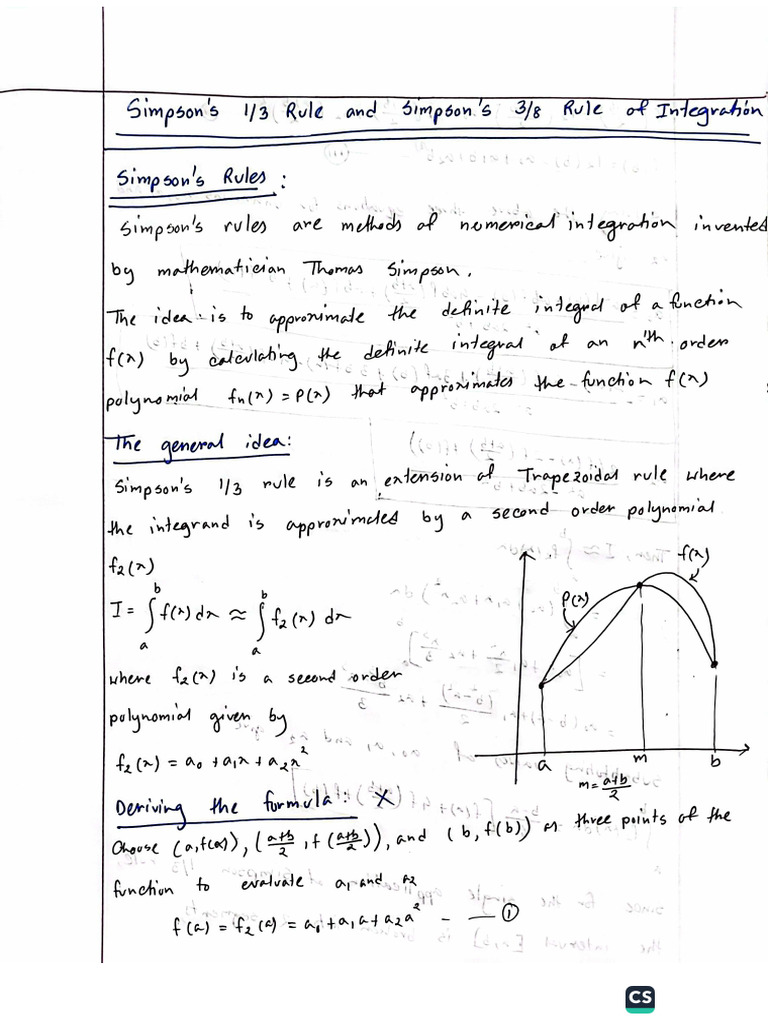 Simpson's 1/3 Rule and Simpson's 3/8 Rule of Integration
Simpson's Rules:
Simpson's rules are methods of numerical integration invented
by mathematician Thomas Simpson.
The idea is to approximate the definite integral of a function
f(x) by calculating the definite integral of an n'th order
polynomial fn(x) = P(x) that approximates the function f(x)
The general idea:
Simpson's 1/3 rule is an extension of Trapezoidal rule where
the integrand is approximated by a second order polynomial
f₂(x)
I = ∫ₐᵇ f(x) dx ≈ ∫ₐᵇ f₂(x) dx
where f₂(x) is a second order
polynomial given by
f₂(x) = a₀ + a₁x + a₂x²
P(x)
f(x)
a m b
m = (a+b)/2
Deriving the formula: X
Choose (a, f(a)), ((a+b)/2, f((a+b)/2)), and (b, f(b)) as three points of the
function to evaluate a₁ and a₂
f(a) = f₂(a) = a₀ + a₁a + a₂a² - — ①
CS